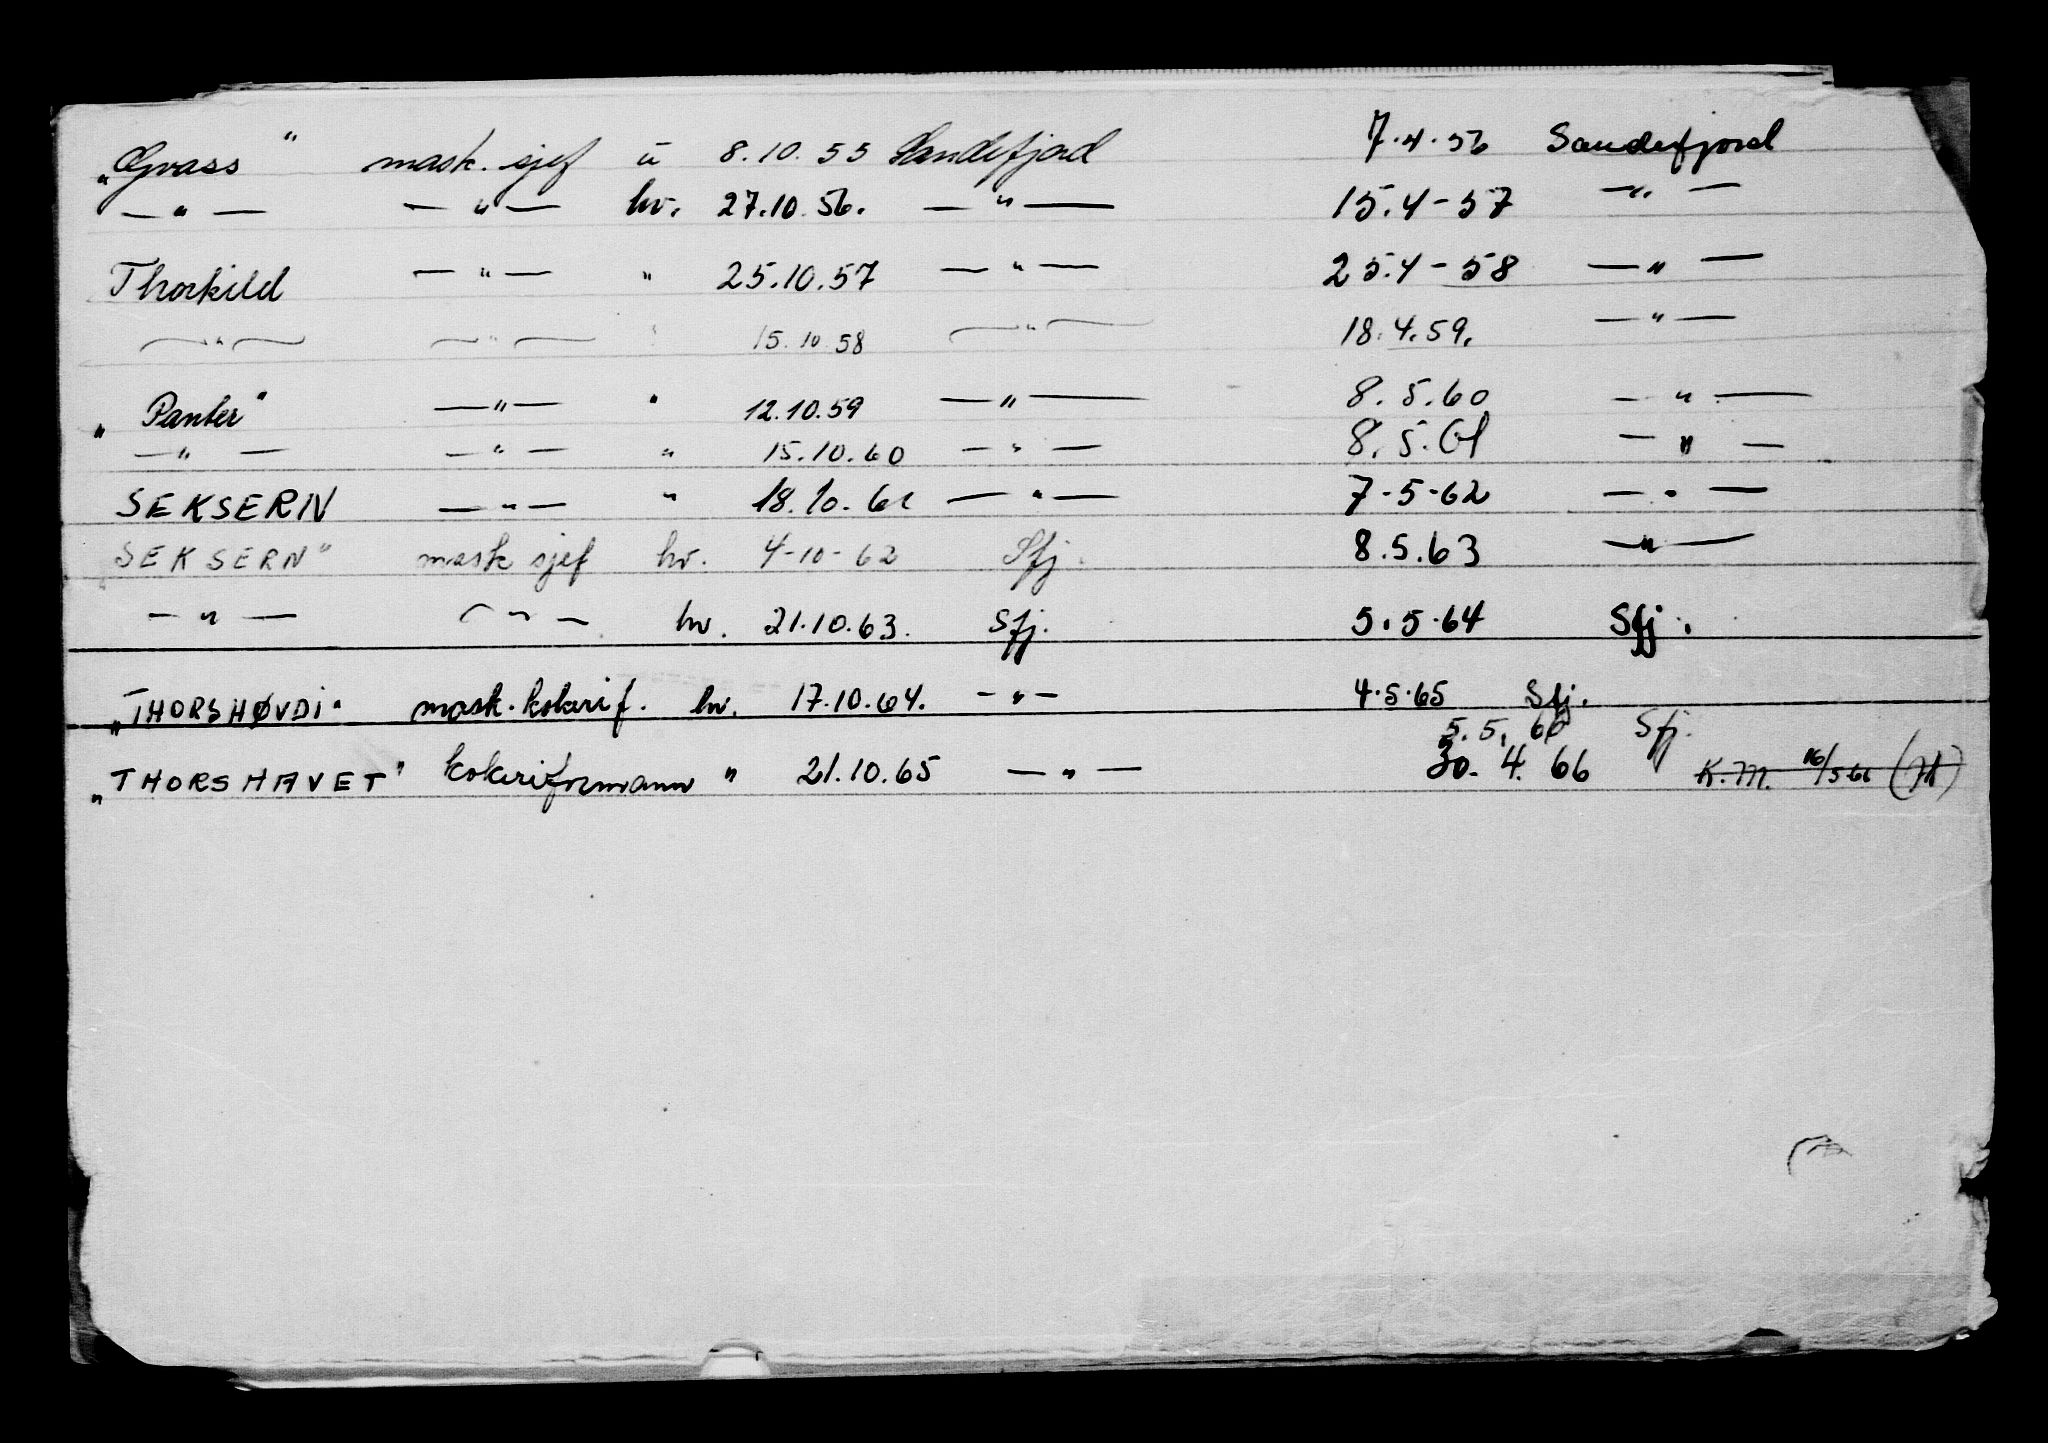 „Gvass" mask. sjef u 8.10.55 Sandefjord 7.4.56 Sandefjord
— " — — " — hv. 27.10.56. — " — 15.4-57 — " —
Thorkild — " — " 25.10.57 — " — 25.4-58 — " —
— " — — " — " 15.10.58 — " — 18.4.59. — " —
„Panter" — " — " 12.10.59 — " — 8.5.60 — " —
— " — — " — " 15.10.60 — " — 8.5.61 — " —
SEKSERN — " — " 18.10.61 — " — 7-5-62 — " —
SEKSERN" mask sjef hv. 4-10-62 Sfj. 8.5.63 — " —
— " — — " — hv. 21.10.63. Sfj. 5.5.64 Sfj.
„THORSHØVDI" mask. kokerif. hv. 17.10.64. — " — 4.5.65 Sfj.
5.5.66 Sfj.
„THORSHAVET" kokeriformann " 21.10.65 — " — 30.4.66 K.M. 16/5 66